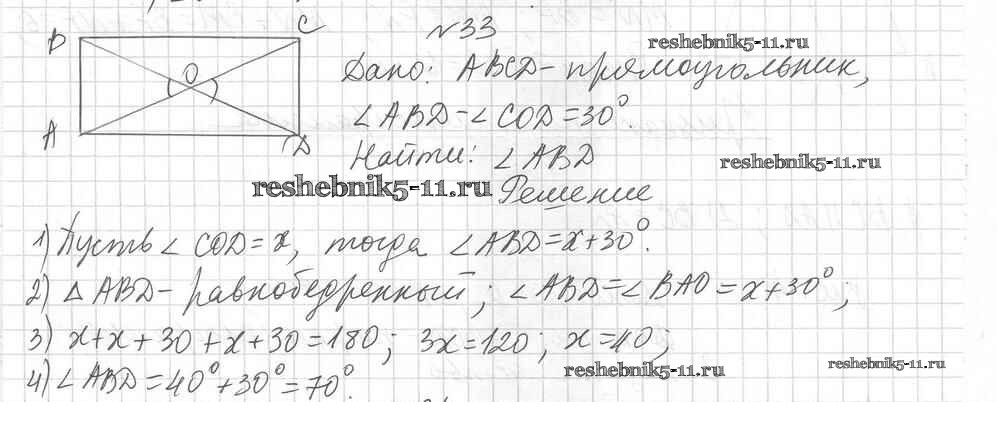 B C
O
A D
№33
reshebnik5-11.ru
Дано: ABCD - прямоугольник,
∠ABD - ∠COD = 30°.
Найти: ∠ABD
reshebnik5-11.ru
reshebnik5-11.ru
Решение
1) Пусть ∠COD = x, тогда ∠ABD = x+30°.
2) △ABD - равнобедренный; ∠ABD = ∠BAO = x+30°;
3) x+x+30+x+30=180; 3x=120; x=40;
reshebnik5-11.ru
reshebnik5-11.ru
4) ∠ABD = 40°+30° = 70°.